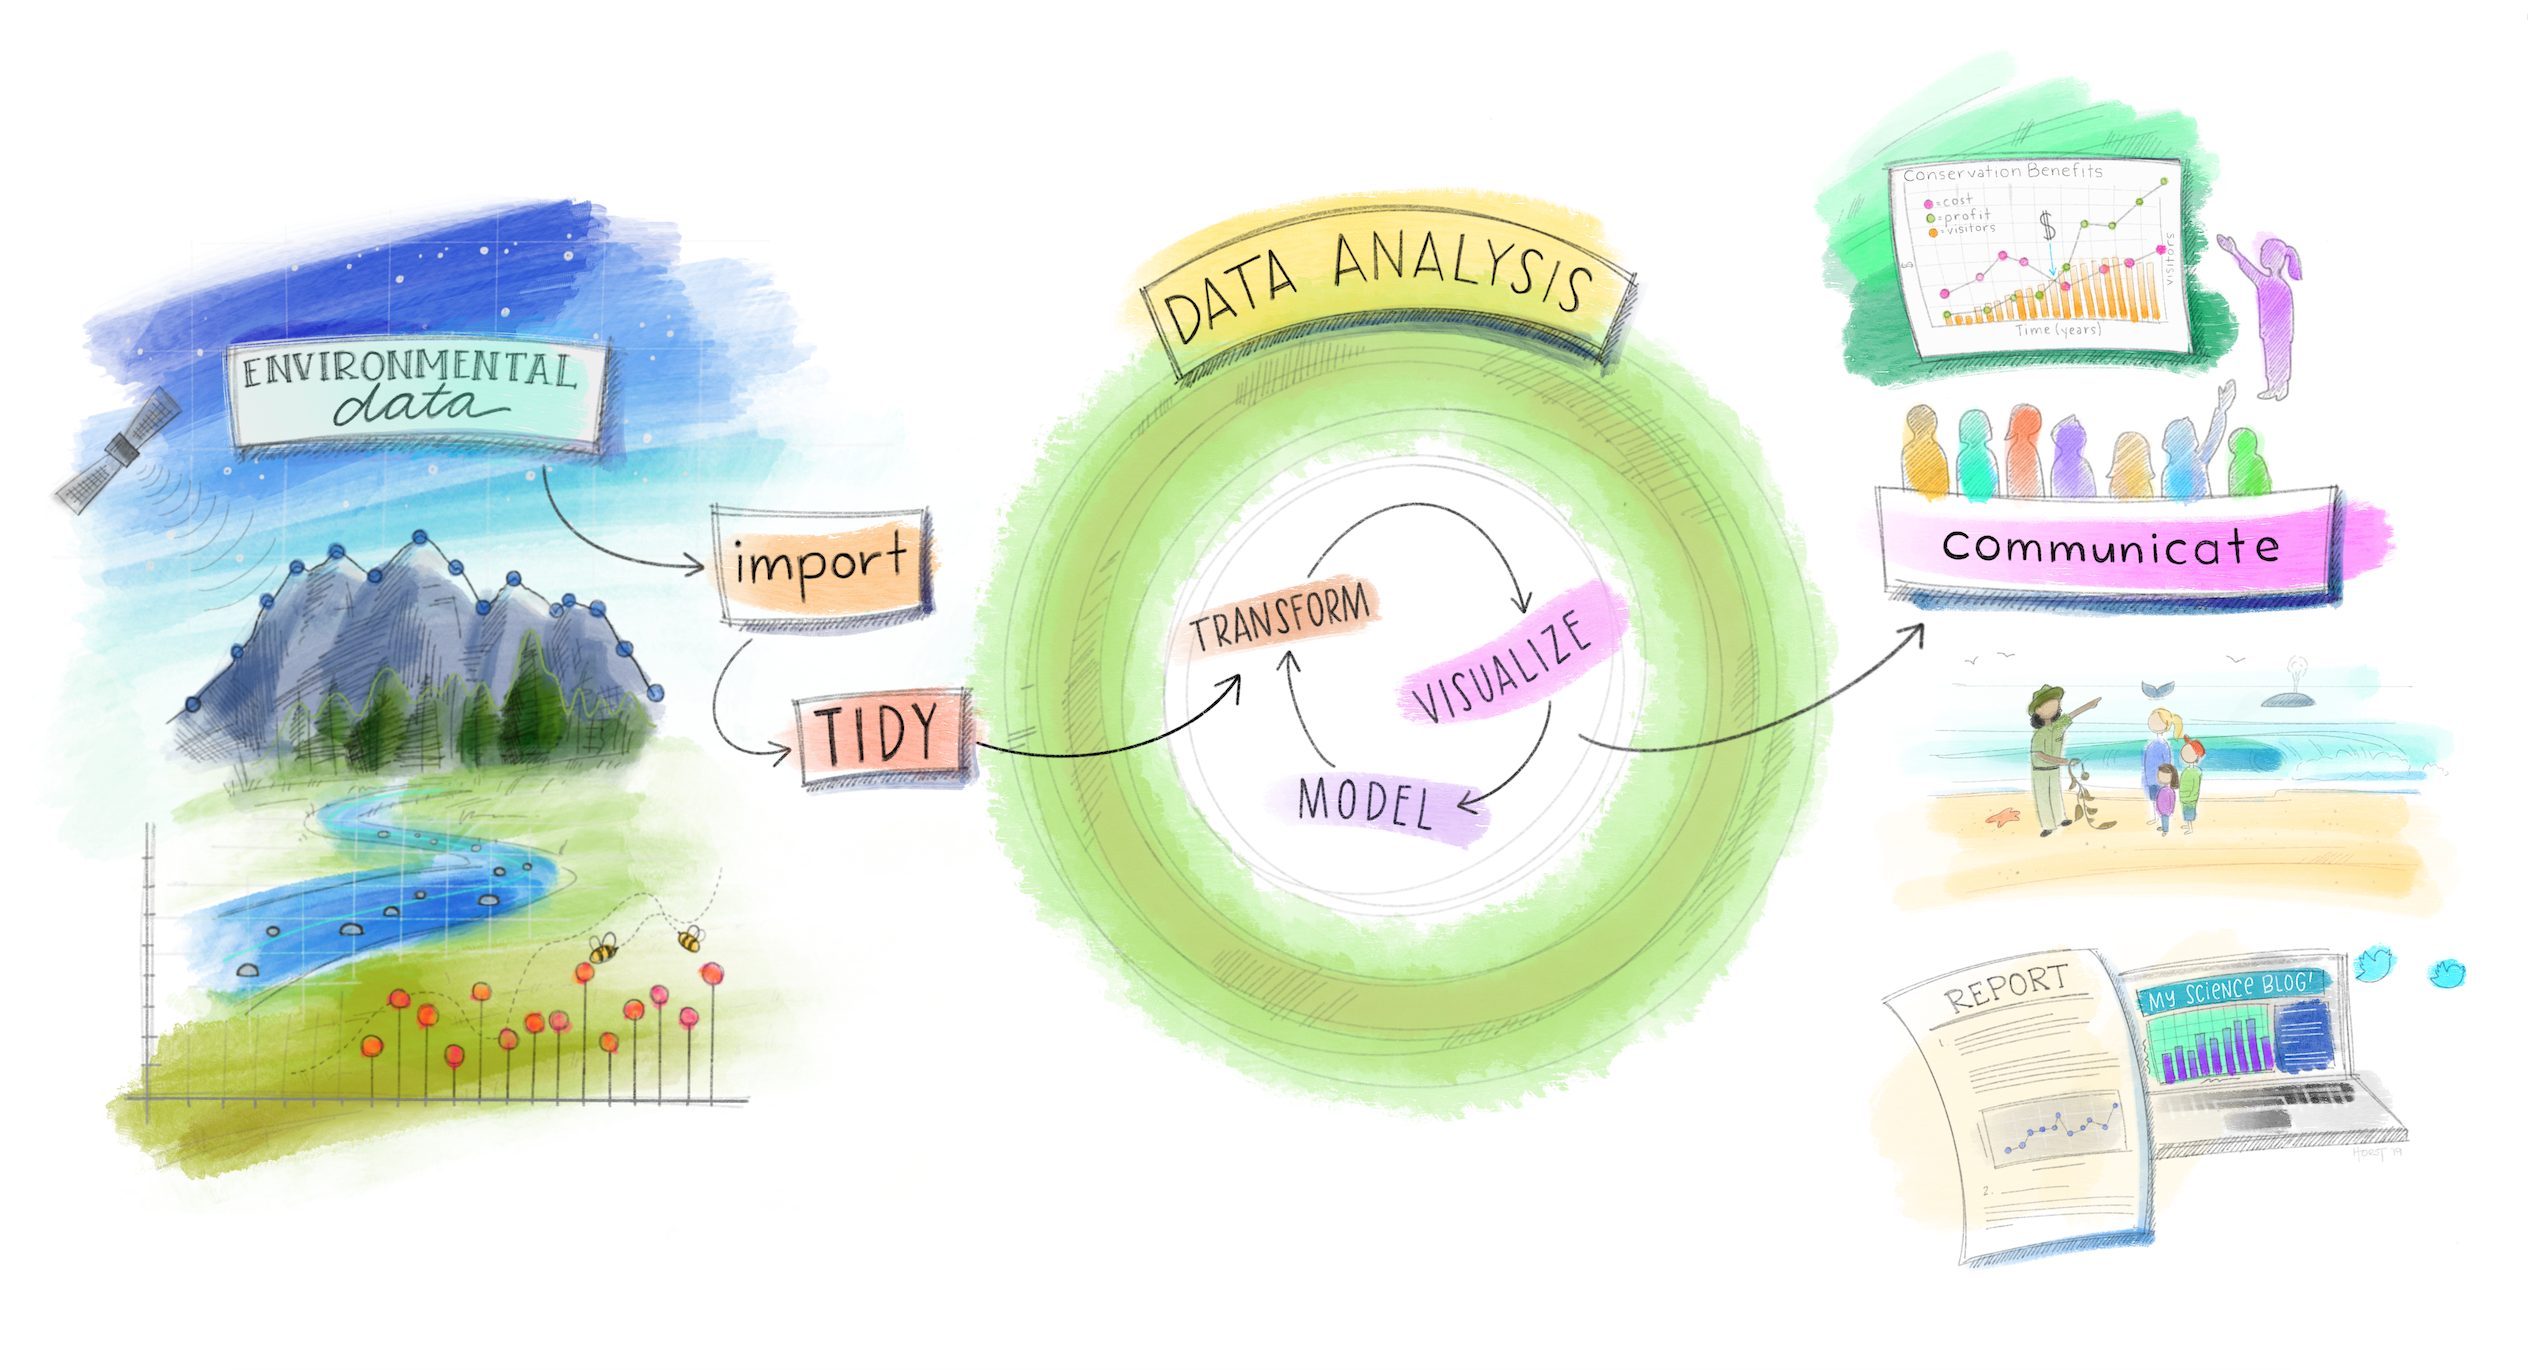 ENVIRONMENTAL
data
import
TIDY
DATA ANALYSIS
TRANSFORM
VISUALIZE
MODEL
Conservation Benefits
=cost
=profit
=visitors
$
$
visitors
Time (years)
communicate
REPORT
1.
2.
MY SCIENCE BLOG!
HORST '19